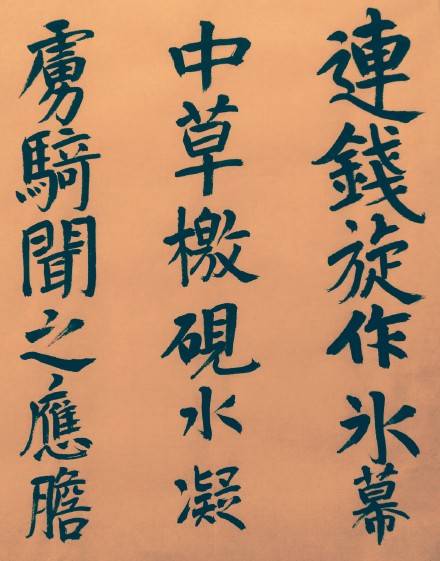 連錢旋作氷幕
中草檄硯水凝
虜騎聞之應膽